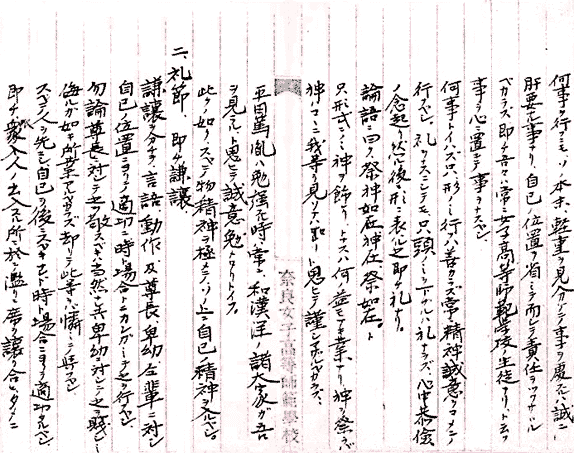 何事ヲ行フニモソノ本末、軽重ヲ見分ケテ事ヲ處スルハ誠ニ
肝要ノ事ナリ、自己ノ位置ヲ省ミテ而シテ責任ヲワスル
ベカラズ即チ吾々ハ常ニ女子高等師範学校ノ生徒ナリト云フ
事ヲ心ニ置キテ事ヲナスベシ
何事トイハズ只形ノミ行ハ善クナズ常ニ精神誠意ヲコメテ
行フベシ 礼ヲスルシテモ只頭ノミ下グルハ礼ナラズ、心中恭倹
ノ念起リ然ル後ニ形ニ表ハル之即チ礼ナリ。
論語ニ曰ク祭神如在神在祭如在。ト
只形式ニノミ神ヲ飾リトスハ何益モナキ業ナリ、神ヲ祭ラバ
神ココニ我等ヲ見ソナハシ給フト思ヒテ謹シマザルベカラズ、
平田篤胤ハ勉強スル時ハ常ニ和漢洋ノ諸大家ガ吾
ヲ見ルト思ヒテ誠意勉メタリトイフ。
此クノ如クスベテ物ハ精神ヲ極メテソノ上ニ自己ノ精神ヲ入ルベシ。
二、礼節、即チ謙譲
謙譲ヲ分チテ言語動作、及尊長、卑幼、仝輩ニ対シ
自己ノ位置ニヨリテ適切ニ時ト場合トヲカンガミテ之ヲ行フベシ
勿論尊長ニ対シテハ敬スベキハ当然ナレ共卑幼ニ対シテ之ヲ賤シミ
侮ルガ如キ所業アルベカラズ却リテ此等ヲ憐ミ導クベシ
スベテ人ヲ先ニシ自己ヲ後ニスベキナレド時ト場合ニヨリテ適切タルベシ
即チ衆人ノ出入スル所ニ於テ濫リニ席ヲ譲リ合フタメニ
奈良女子高等師範學校